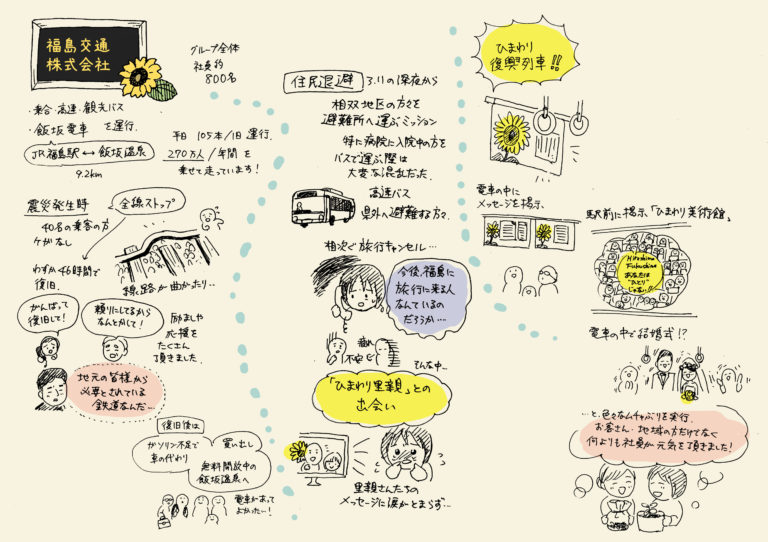 福島交通
株式会社
グループ全体
社員約
800名
・乗合・高速・観光バス
・飯坂電車 を運行.
JR福島駅 ↔ 飯坂温泉
9.2km
平日 105本/1日 運行.
270万人/年間 を
乗せて走っています!
震災発生時
全線ストップ
40名の乗客の方
ケガなし
わずか46時間で
復旧.
線路が曲がったり…
がんばって
復旧して!
頼りにしてるから
なんとかして!
励ましや
応援を
たくさん
頂きました.
地元の皆様から
必要とされている
鉄道なんだ…
復旧後は
ガソリン不足で
車の代わり
買い出し
無料開放中の
飯坂温泉へ
電車があって
よかったー!
住民退避
3.11の深夜から
相双地区の方々を
避難所へ運ぶミッション
特に病院に入院中の方を
バスで運ぶ際は
大変な混乱だった.
高速バス
県外へ避難する方々.
相次ぐ旅行キャンセル…
今後、福島に
旅行に来る人
なんているの
だろうか…
疲れ
不安
そんな中…
「ひまわり里親」との
出会い
里親さんたちの
メッセージに涙がとまらず…
ひまわり
復興列車!!
電車の中に
メッセージを掲示
駅前に掲示「ひまわり美術館」
Hiroshima
Fukushima
あなたは
"ひとり"
じゃない!!
電車の中で結婚式!?
…と、色々なムチャぶりを実行.
お客さん・地域の方だけでなく
何よりも社員が元気を頂きました!